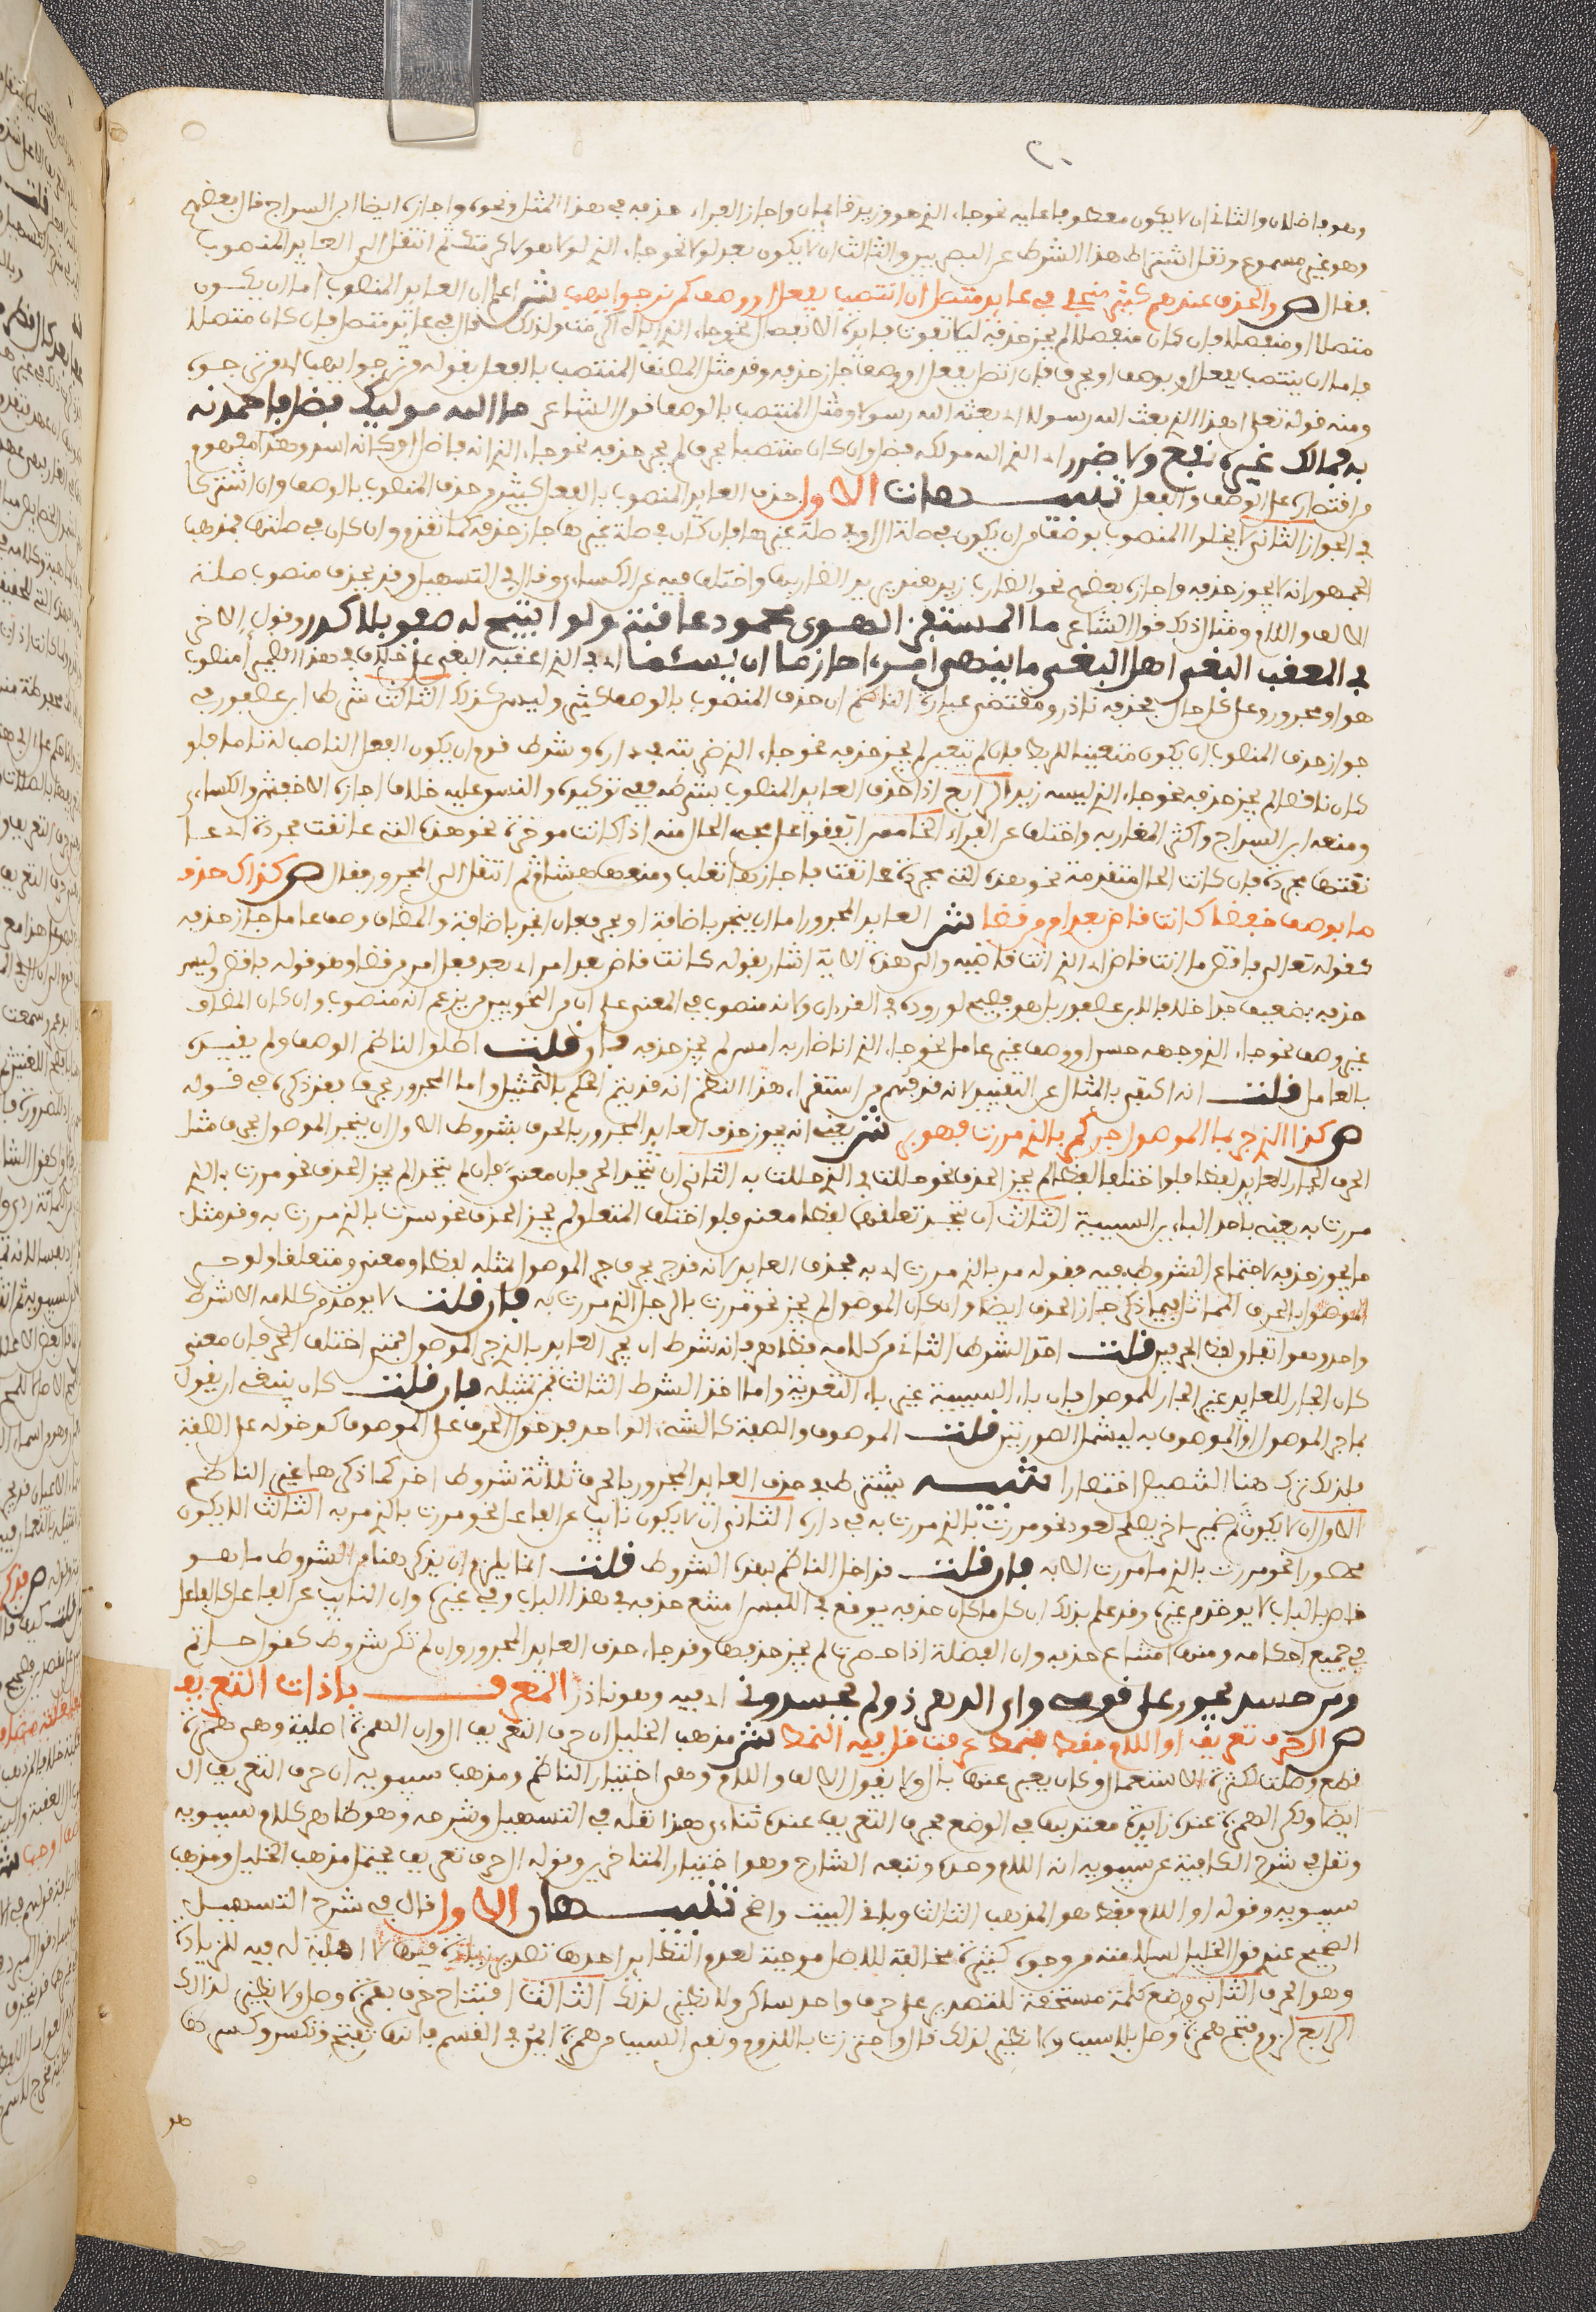 ٢٠
وهو فاضلان والثاني ان لا يكون معطوفا عليه نحو جاء الذي هو وزيد قائمان واجاز الفراء حذفه في هذا المثل ونحوه واجازه ايضا ابن السراج قال بعضهم
وهو غير مسموع ونقل اشتراط هذا الشرط عن البصريين والثالث ان لا يكون بعد لولا نحو جاء الذي لولا هو لاكرمتك ثم انتقل الى العايد المنصوب
فقال ص والحذف عندهم كثير منجلي في عايد متصل ان انتصب بفعل او وصف كمن نرجو يهب ش اعلم ان العايد المنصوب اما ان يكون
متصلا او منفصلا فان كان منفصلا لم يجز حذفه ليلا تفوت فايدة الانفصال نحو جاء الذي اياه اكرمت ولذلك قال في عايد متصل فان كان متصلا
فاما ان ينتصب بفعل او بوصف او بحرف فان اتصل بفعل او وصف جاز حذفه وقد مثل المصنف المنتصب بالفعل بقوله من نرجو يهب اي من نرجوه
ومنه قوله تعلى اهذا الذي بعث الله رسولا اي بعثه الله رسولا ومثل المنتصب بالوصف قول الشاعر ما الله موليك فضل فاحمدنه
به فما لدى غيره نفع ولا ضرر اي الذي الله موليكه فضل وان كان منتصبا بحرف لم يجز حذفه نحو جاء الذي انه فاضل او كانه اسد وهذا مفهوم
من اقتصاره على الوصف والفعل تنبيهات الاول حذف العايد المنصوب بالفعل كثير وحذف المنصوب بالوصف وان اشتركا
في الجواز الثاني لا يخلو المنصوب بوصف من ان يكون في صلة ال او في صلة غيرها فان كان في صلة غيرها جاز حذفه كما تقدم وان كان في صلتها فمذهب
الجمهور انه لا يجوز حذفه واجازه بعضهم نحو الضارب زيد هند يريد الضاربها واختلف فيه عن الكساءي وقال في التسهيل وقد يحذف منصوب صلة
الالف واللام ومثال ذلك قول الشاعر ما المستفز الهوى محمود عاقبة ولو اتيح له صفو بلا كدر وقول الاخر
في المعقب البغي اهل البغي ما ينهى امرءا حازما ان يسئما اي في الذي اعقبه البغي على خلاف في هذا الضمير امنصوب
هو او مجرور وعلى كل حال فحذفه نادر ومقتضى عبارة الناظم ان حذف المنصوب بالوصف كثير وليس كذلك الثالث شرط ابن عصفور في
جواز حذف المنصوب ان يكون متعينا للربط فان لم يتعين لم يجز حذفه نحو جاء الذي ضربته في داره وشرط قوم ان يكون الفعل الناصب له تاما فلو
كان ناقصا لم يجز حذفه نحو جاء الذي ليسه زيد الرابع اذا حذف العايد المنصوب بشرطه ففي توكيده والنسق عليه خلاف اجازه الاخفش والكساءي
ومنعه ابن السراج واكثر المغاربة واختلف عن الفراء الخامس اتفقوا على مجيء الحال منه اذا كانت موخرة نحو هذه التي عانقت مجردة اي عا
نقتها مجردة فان كانت الحال متقدمة نحو هذه التي مجردة عانقت فاجازها ثعلب ومنعها هشام ثم انتقل الى المجرور فقال ص كذاك حذف
ما بوصف خفضا كانت قاض بعد امر من قضى ش العايد المجرور اما ان ينجر باضافة او بحرف فان انجر باضافة والمضاف وصف عامل جاز حذفه
كقوله تعالى فاقض ما انت قاض اي الذي انت قاضيه والى هذه الاية اشار بقوله كانت قاض بعد امر اي بعد فعل امر من قضى وهو قوله فاقض وليس
حذفه بضعيف جدا خلافا لابن عصفور بل هو فصيح لوروده في القرءان ولانه منصوب في المعنى على ان من النحويين من يزعم انه منصوب وان كان المضاف
غير وصف نحو جاء الذي وجهه حسن او وصف غير عامل نحو جاء الذي انا ضاربه امس لم يجز حذفه فان قلت اطلق الناظم الوصف ولم يقيده
بالعامل قلت انه اكتفى بالمثال عن التقييد لانه قد فهم من استقراء هذا النظم انه قد يتم الحكم بالتمثيل واما المجرور بحرف فقد ذكره في قوله
ص كذا الذي جر بما الموصول جر كمر بالذي مررت فهو بر ش يعني انه يجوز حذف العايد المجرور بالحرف بشروط الاول ان ينجر الموصول بحرف مثل
الحرف الجار للعايد لفظا فلو اختلفا لفظا لم يجز الحذف نحو حللت في الذي حللت به الثاني ان يتحد الحرفان معنى فان لم يتحدا لم يجز الحذف نحو مررت بالذي
مررت به يعني باحد الباءين السببية الثالث ان يتحد تعلقهما لفظا معنى فلو اختلف المتعلق لم يجز الحذف نحو سررت بالذي مررت به وقد مثل
ما يجوز حذفه لاجتماع الشروط فيه بقوله مر بالذي مررت اي به فحذف العايد لانه قد جر بحرف جر الموصول بمثله لفظا ومعنى ومتعلقا ولو جر
الموصوف بالحرف المماثل فيما ذكر جاز الحذف ايضا وان كان الموصول لم يجز نحو مررت بالرجل الذي مررت به فان قلت لا يوخذ من كلامه الا شرط
واحد وهو اتفاق لفظ الحرفين قلت اخذ الشرط الثاني من كلامه ظاهر فانه شرط ان يجر العايد بالذي جر الموصول فمتى اختلف الحرفان معنى
كان الجار للعايد غير الجار للموصول فان باء السببية غير باء التعدية واما اخذ الشرط الثالث فمن تمثيله فان قلت كان ينبغي ان يقول
بما جر الموصول او الموصوف به ليشمل الصورتين قلت الموصوف والصفة كالشيء الواحد فدخول الحرف على الموصوف كدخوله على الصفة
فلذلك ترك هنا التفصيل اختصارا تنبيه يشترط في حذف العايد المجرور بالحرف ثلاثة شروط اخر كما ذكرها غير الناظم
الاول ان لا يكون ثم ضمير ءاخر يصلح للعود نحو مررت بالذي مررت به في داره الثاني ان لا يكون نايبا عن الفاعل نحو مررت بالذي مر به الثالث الا يكون
محصورا نحو مررت بالذي ما مررت الا به فان قلت قد اخل الناظم بهذه الشروط قلت انما يلزم ان يذكر هنا من الشروط ما هو
خاص بالباب لا يوخذ من غيره وقد علم بذلك ان كل ما كان حذفه يوقع في اللبس امتنع حذفه في هذا الباب وفي غيره وان النايب عن الفاعل كالفاعل
في جميع احكامه ومنها امتناع حذفه وان الفضلة اذا حصرت لم يجز حذفها وقد جاء حذف العايد المجرور وان لم تكن شروط كقول حاتم
ومن حسد يجور علي قومي واي الدهر ذو لم يحسدوني اي فيه وهو نادر المعرف باداة التعريف
ص ال حرف تعريف او اللام فقط فنمط عرفت قل فيه النمط ش مذهب الخليل ان حرف التعريف ال وان الهمزة اصلية وهي همزة
قطع وصلت لكثرة الاستعمال وكان يعبر عنها بال ولا يقول الالف واللام وهو اختيار الناظم ومذهب سيبويه ان حرف التعريف ال
ايضا ولكن الهمزة عنده زايدة معتد بها في الوضع فحرف التعريف عنده ثناءي هذا نقله في التسهيل وشرحه وهو ظاهر كلام سيبويه
ونقل في شرح الكافية عن سيبويه انه اللام وحده وتبعه الشارح وهو اختيار المتاخرين وقوله ال حرف تعريف يحتمل مذهب الخليل ومذهب
سيبويه وقوله او اللام فقط هو المذهب الثالث وباقي البيت واضح تنبيهان الاول قال في شرح التسهيل
الصحيح عندي قول الخليل لسلامته من وجوه كثيرة مخالفة للاصل موجبة لعدم النظاير احدها تصدير زيادة فيما لا اهلية له فيه للزيادة
وهو الحرف الثاني وضع كلمة مستحقة للتصدير على حرف واحد ساكن ولا نظير لذلك الثالث افتتاح حرف بهمزة وصل ولا نظير لذالك
الرابع لزوم فتح همزة وصل بلا سبب ولا نظير لذلك قال واحترزت باللزوم ونفي السبب من همزة ايمن في القسم فانها تفتح وتكسر وكسرها
هو